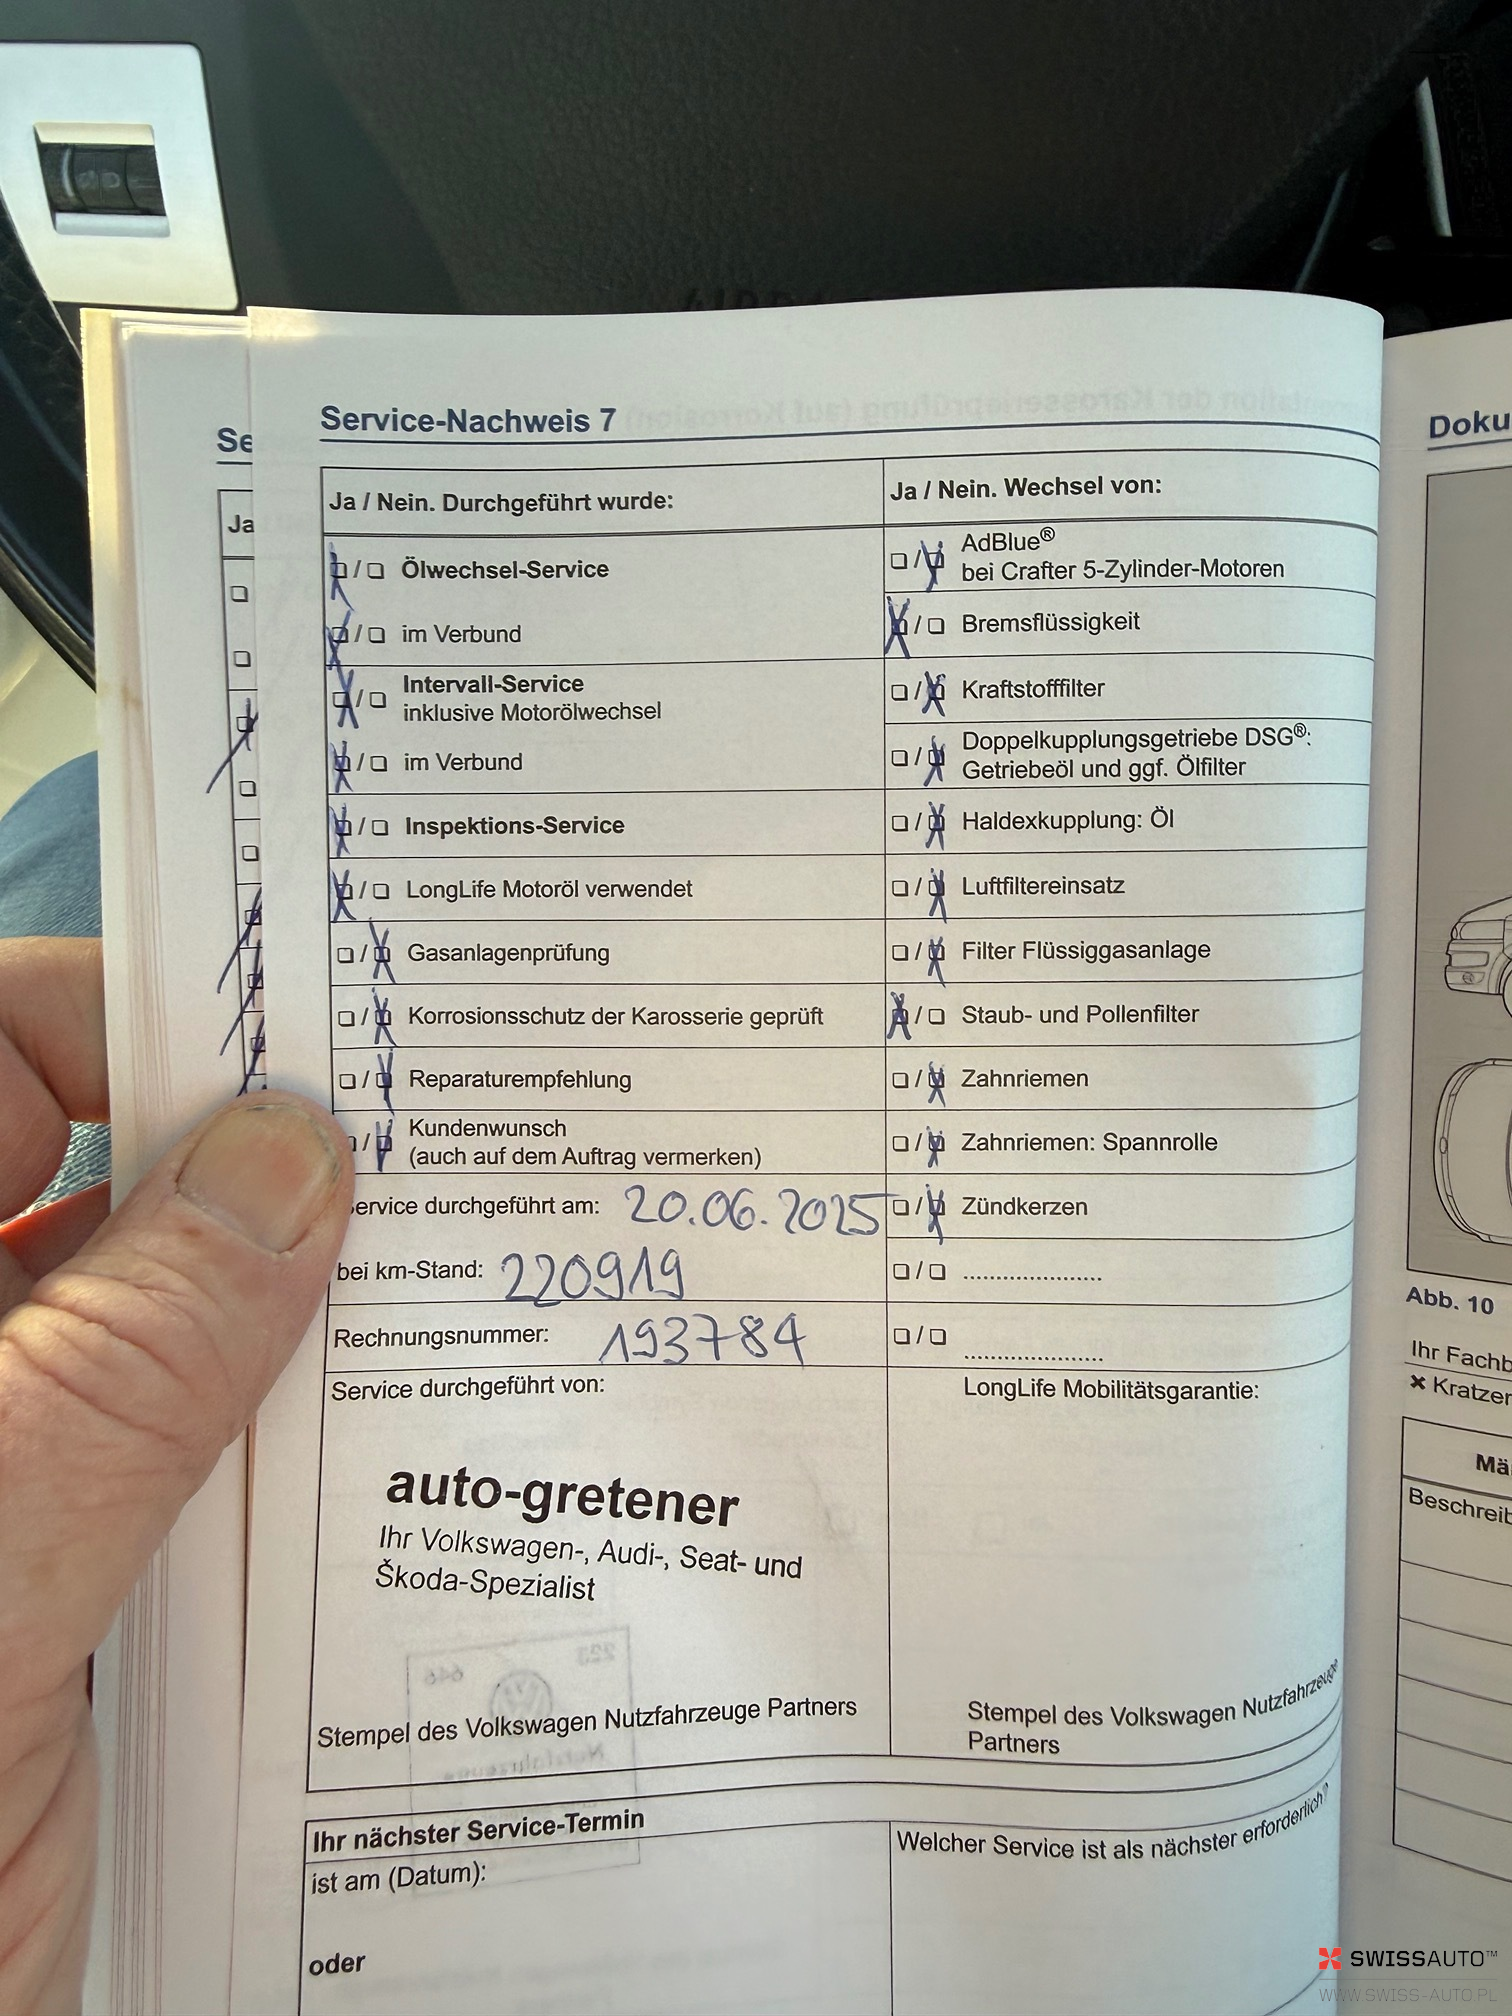 Service-Nachweis 7
Ja / Nein. Durchgeführt wurde:
Ölwechsel-Service
im Verbund
Intervall-Service
inklusive Motorölwechsel
im Verbund
Inspektions-Service
LongLife Motoröl verwendet
Gasanlagenprüfung
Korrosionsschutz der Karosserie geprüft
Reparaturempfehlung
Kundenwunsch
(auch auf dem Auftrag vermerken)
ervice durchgeführt am: 20.06.2025
bei km-Stand: 220919
Rechnungsnummer: 193784
Ja / Nein. Wechsel von:
AdBlue®
bei Crafter 5-Zylinder-Motoren
Bremsflüssigkeit
Kraftstofffilter
Doppelkupplungsgetriebe DSG®:
Getriebeöl und ggf. Ölfilter
Haldexkupplung: Öl
Luftfiltereinsatz
Filter Flüssiggasanlage
Staub- und Pollenfilter
Zahnriemen
Zahnriemen: Spannrolle
Zündkerzen
Service durchgeführt von:
auto-gretener
Ihr Volkswagen-, Audi-, Seat- und
Škoda-Spezialist
Stempel des Volkswagen Nutzfahrzeuge Partners
LongLife Mobilitätsgarantie:
Stempel des Volkswagen Nutzfahrzeuge
Partners
Ihr nächster Service-Termin
ist am (Datum):
oder
Welcher Service ist als nächster erforderlich?
Se
Ja
Doku
Abb. 10
Ihr Fachb
× Kratzer
Mä
Beschreib
SWISSAUTO™
WWW.SWISS-AUTO.PL